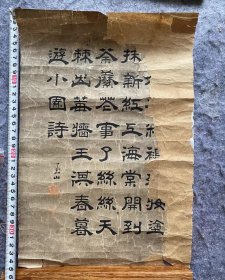 褪 妝塗
抹新紅上海棠開到
荼蘼花事了絲絲天
棘出莓牆王淇春暮
遊小園詩